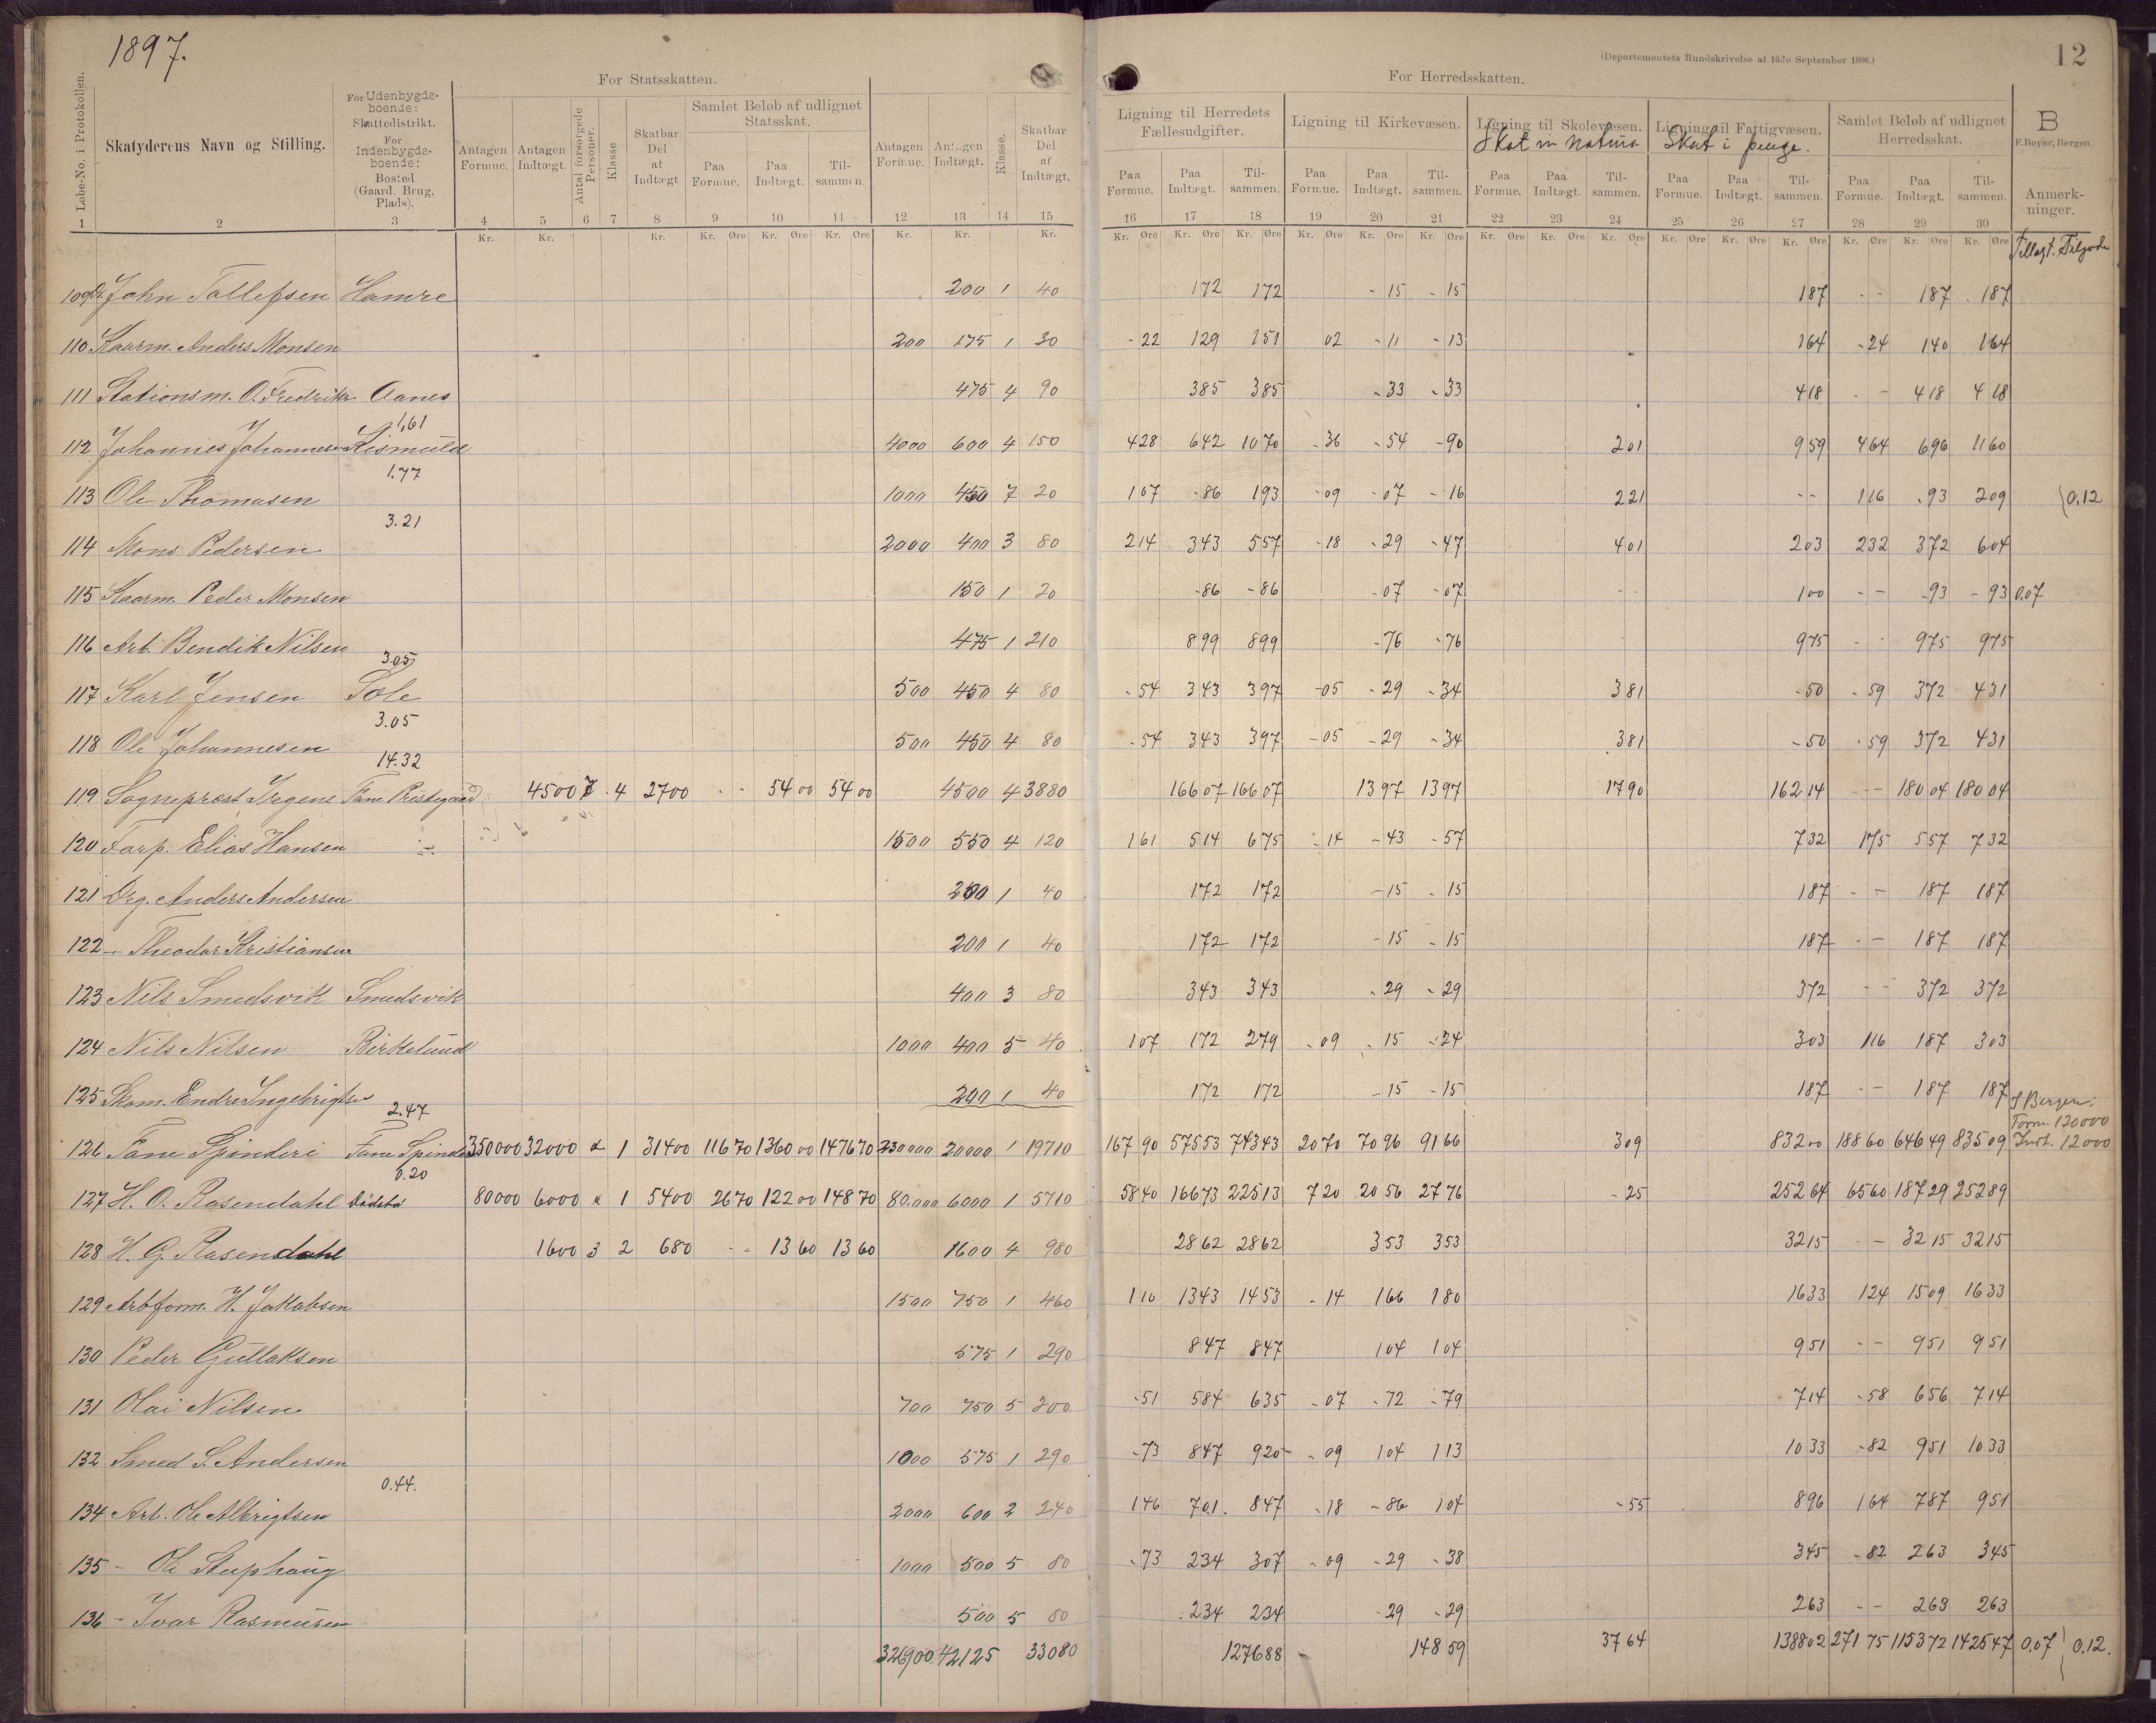 1897.
12
(Departementets Rundskrivelse af 16de September 1896.)
For Statsskatten.
For Herredsskatten.
Løbe-No. i Protokollen.
Skatyderens Navn og Stilling.
For Udenbygds-boende: Skattedistrikt. For Indenbygds-boende: Bosted (Gaard, Brug, Plads).
Antagen Formue.
Antagen Indtægt.
Antal forsørgede Personer.
Klasse
Skatbar Del af Indtægt
Samlet Beløb af udlignet Statsskat.
Paa Formue. Paa Indtægt. Til-sammen.
Antagen Formue.
Antagen Indtægt.
Klasse.
Skatbar Del af Indtægt.
Ligning til Herredets Fællesudgifter.
Paa Formue. Paa Indtægt. Til-sammen.
Ligning til Kirkevæsen.
Paa Formue. Paa Indtægt. Til-sammen.
Ligning til Skolevæsen.
Skat in natura
Paa Formue. Paa Indtægt. Til-sammen.
Ligning til Fattigvæsen.
Skat i penge.
Paa Formue. Paa Indtægt. Til-sammen.
Samlet Beløb af udlignet Herredsskat.
Paa Formue. Paa Indtægt. Til-sammen.
B
F. Beyer, Bergen.
Anmerk-ninger.
1 2 3 4 5 6 7 8 9 10 11 12 13 14 15 16 17 18 19 20 21 22 23 24 25 26 27 28 29 30
Kr. Kr. Kr. Kr. Øre Kr. Øre Kr. Øre Kr. Kr. Kr. Kr. Øre Kr. Øre Kr. Øre Kr. Øre Kr. Øre Kr. Øre Kr. Øre Kr. Øre Kr. Øre Kr. Øre Kr. Øre Kr. Øre Kr. Øre Kr. Øre Kr. Øre
Tillagt. Tilgode
109 John Tollefsen Hamre 200 1 40 172 172 - 15 - 15 187 - - 187 187
110 Kaarm. Anders Monsen 200 175 1 30 - 22 129 151 02 - 11 - 13 164 - 24 140 164
111 Stationsm. O. Fredriks Aanes 475 4 90 385 385 - 33 - 33 418 - - 418 418
1,61
112 Johannes Johannesen Kismuld 4000 600 4 150 428 642 1070 - 36 - 54 - 90 201 959 464 696 1160
1.77
113 Ole Thomasen 1000 450 7 20 107 - 86 193 - 09 - 07 - 16 221 - - 116 - 93 209 0.12
3.21
114 Mons Pedersen 2000 400 3 80 214 343 557 - 18 - 29 - 47 401 203 232 372 604
115 Kaarm. Peder Monsen 150 1 20 - 86 - 86 - 07 - 07 - - 100 - - - 93 - 93 0.07
116 Arb. Bendik Nilsen 475 1 210 899 899 - 76 - 76 975 - - 975 975
3.05
117 Karl Jensen Sole 500 450 4 80 - 54 343 397 - 05 - 29 - 34 381 - 50 - 59 372 431
3.05
118 Ole Johannesen 500 450 4 80 - 54 343 397 - 05 - 29 - 34 381 - 50 - 59 372 431
14.32
119 Sogneprest Irgens Fane Prestegaard 4500 7 4 2700 - - 54 00 54 00 4500 4 3880 166 07 166 07 13 97 13 97 17 90 162 14 - - 180 04 180 04
120 Forp. Elias Hansen 1500 550 4 120 161 514 675 - 14 - 43 - 57 732 175 557 732
121 Drg. Anders Andersen 200 1 40 172 172 - 15 - 15 187 - - 187 187
122 - Theodor Kristiansen 200 1 40 172 172 - 15 - 15 187 - - 187 187
123 Nils Smedsvik Smedsvik 400 3 80 343 343 - 29 - 29 372 - - 372 372
124 Nils Nilsen Birkelund 1000 400 5 40 107 172 279 - 09 - 15 - 24 303 116 187 303
125 Skom. Endre Ingebrigtsen 200 1 40 172 172 - 15 - 15 187 - - 187 187
2.47
I Bergen:
Form. 120000
126 Fane Spinderi Fane Spinderi 350000 32000 x 1 31400 116 70 1360 00 1476 70 230000 20000 1 19710 167 90 575 53 743 43 20 70 70 96 91 66 309 832 00 188 60 646 49 835 09 Indt. 12000
0.20
127 H. O. Rosendahl Dödsbo 80000 6000 x 1 5400 26 70 122 00 148 70 80.000 6000 1 5710 58 40 166 73 225 13 7 20 20 56 27 76 - 25 252 64 65 60 187 29 252 89
128 H. G. Rosendahl 1600 3 2 680 - - 13 60 13 60 1600 4 980 28 62 28 62 3 53 3 53 32 15 - - 32 15 32 15
129 Arbform. H. Jakobsen 1500 750 1 460 110 1343 1453 - 14 166 180 1633 124 1509 1633
130 Peder Gullaksen 575 1 290 847 847 104 104 951 - - 951 951
131 Olai Nilsen 700 750 5 200 - 51 584 635 - 07 - 72 - 79 714 - 58 656 714
132 Smed S. Andersen 1000 575 1 290 - 73 847 920 - 09 104 113 1033 - 82 951 1033
0.44.
134 Arb. Ole Albrigtsen 2000 600 2 240 146 701 847 - 18 - 86 104 - 55 896 164 787 951
135 - Ole Stuphaug 1000 500 5 80 - 73 234 307 - 09 - 29 - 38 345 - 82 263 345
136 - Ivar Rasmusen 500 5 80 234 234 - 29 - 29 263 - - 263 263
326900 42125 33080 1276 88 148 59 37 64 1388 02 271 75 1153 72 1425 47 0.07 0.12.